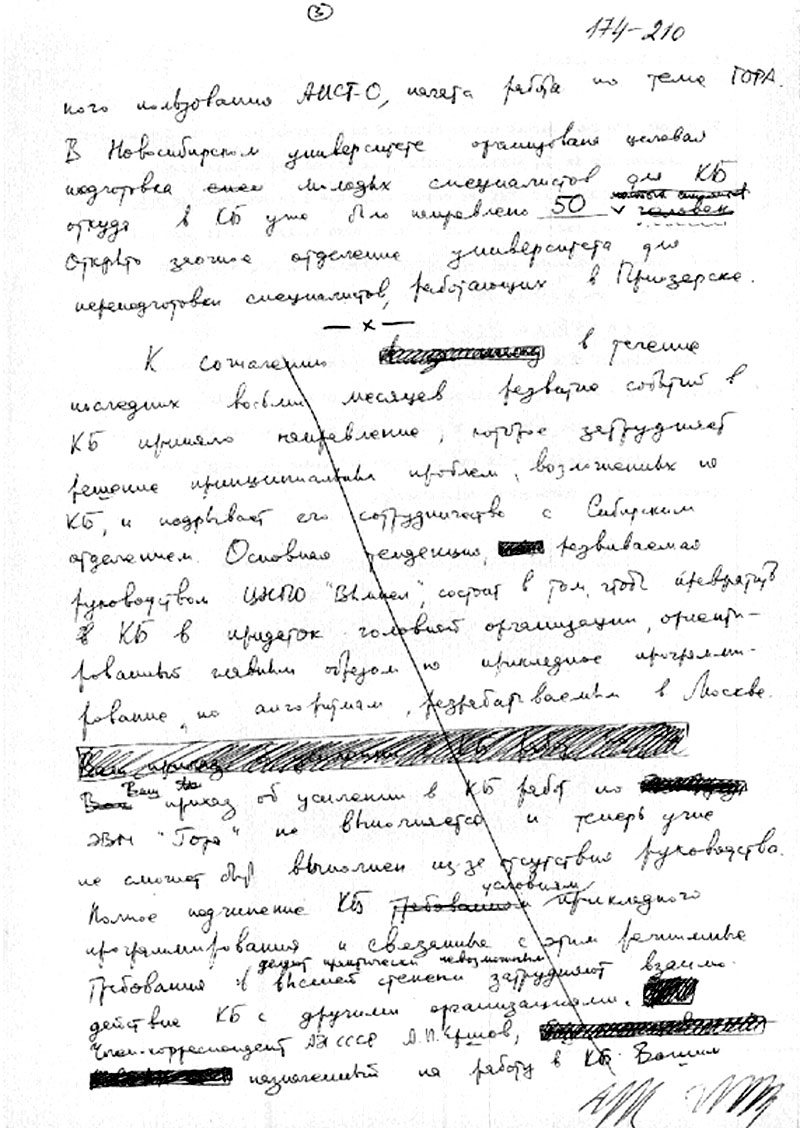 3
174-210
ного пользования АИСТ-0, начата работа по теме ГОРА.
В Новосибирском университете организована целевая
подготовка молодых специалистов для КБ
откуда в КБ уже было направлено 50 человек
Открыто заочное отделение университета для
переподготовки специалистов, работающих в Приозерске.
— х —
К сожалению в течение
последних восьми месяцев развитие событий в
КБ приняло направление, которое затрудняет
решение принципиальных проблем, возложенных на
КБ, и подрывает его сотрудничество с Сибирским
отделением. Основная тенденция, развиваемая
руководством ЦНПО "Вымпел", состоит в том, чтобы превратить
КБ в придаток головной организации, ориенти-
рованный главным образом на прикладное программи-
рование, по алгоритмам, разрабатываемым в Москве.
Ваш приказ
Ваш приказ об усилении в КБ работ по
ЭВМ "Гора" не выполняется и теперь уже
не сможет быть выполнен из-за отсутствия руководства.
условиям
Полное подчинение КБ требованиям прикладного
программирования и связанные с этим режимные
делают практически невозможным
требования в высшей степени затрудняют взаимо-
действие КБ с другими организациями.
Член-корреспондент АН СССР А.П. Ершов,
назначенный на работу в КБ Вашим